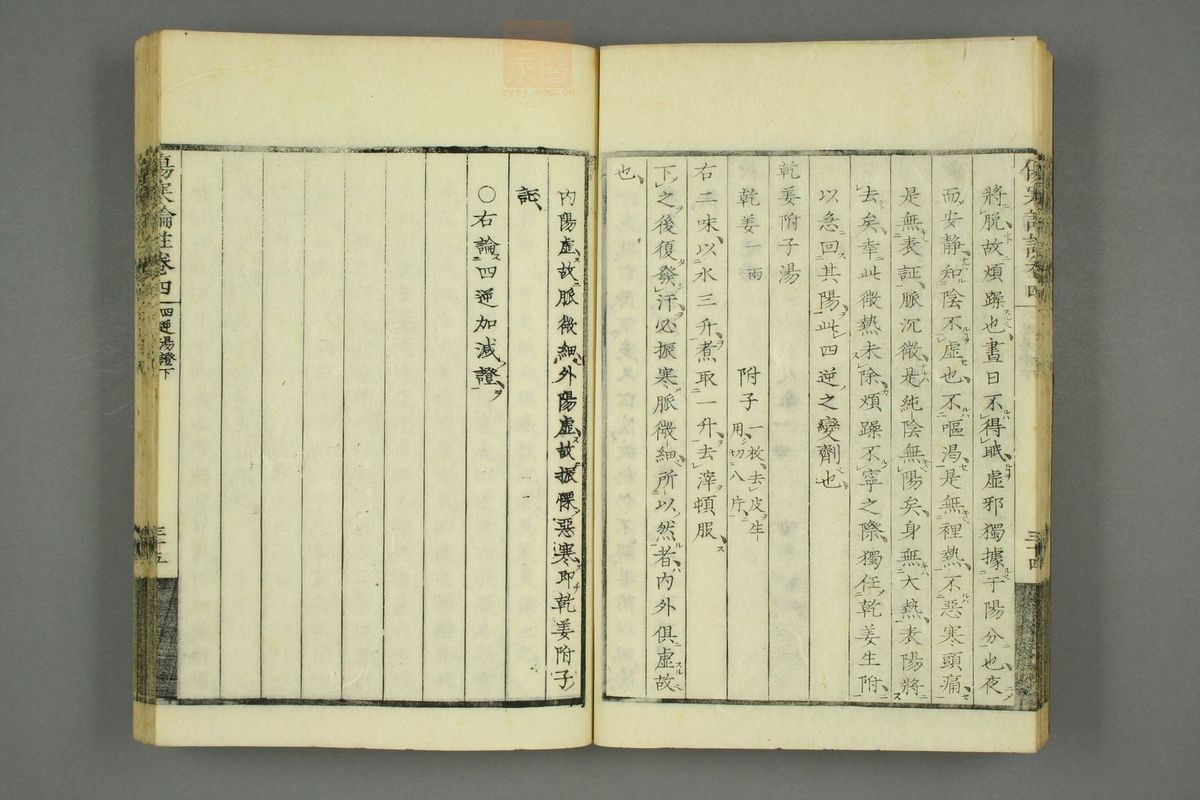 將脫故煩躁也晝日不得眠虛邪獨據于陽分也夜
而安静知陰不虛也不嘔渴是無裡熱不惡寒頭痛
是無表証脈沉微是純陰無陽矣身無大熱表陽將
去矣幸此微熱未除煩躁不寧之際獨任乾姜生附
以急回其陽此四逆之變劑也
乾姜附子湯
乾姜一兩 附子一枚去皮生用切八片
右二味以水三升煮取一升去滓頓服
下之後復發汗必振寒脈微細所以然者內外俱虛故
也
內陽虛故脈微細外陽虛故振慄惡寒即乾姜附子
証
○右論四逆加減證
傷寒論註卷四 四逆湯證下 三十五
三十四